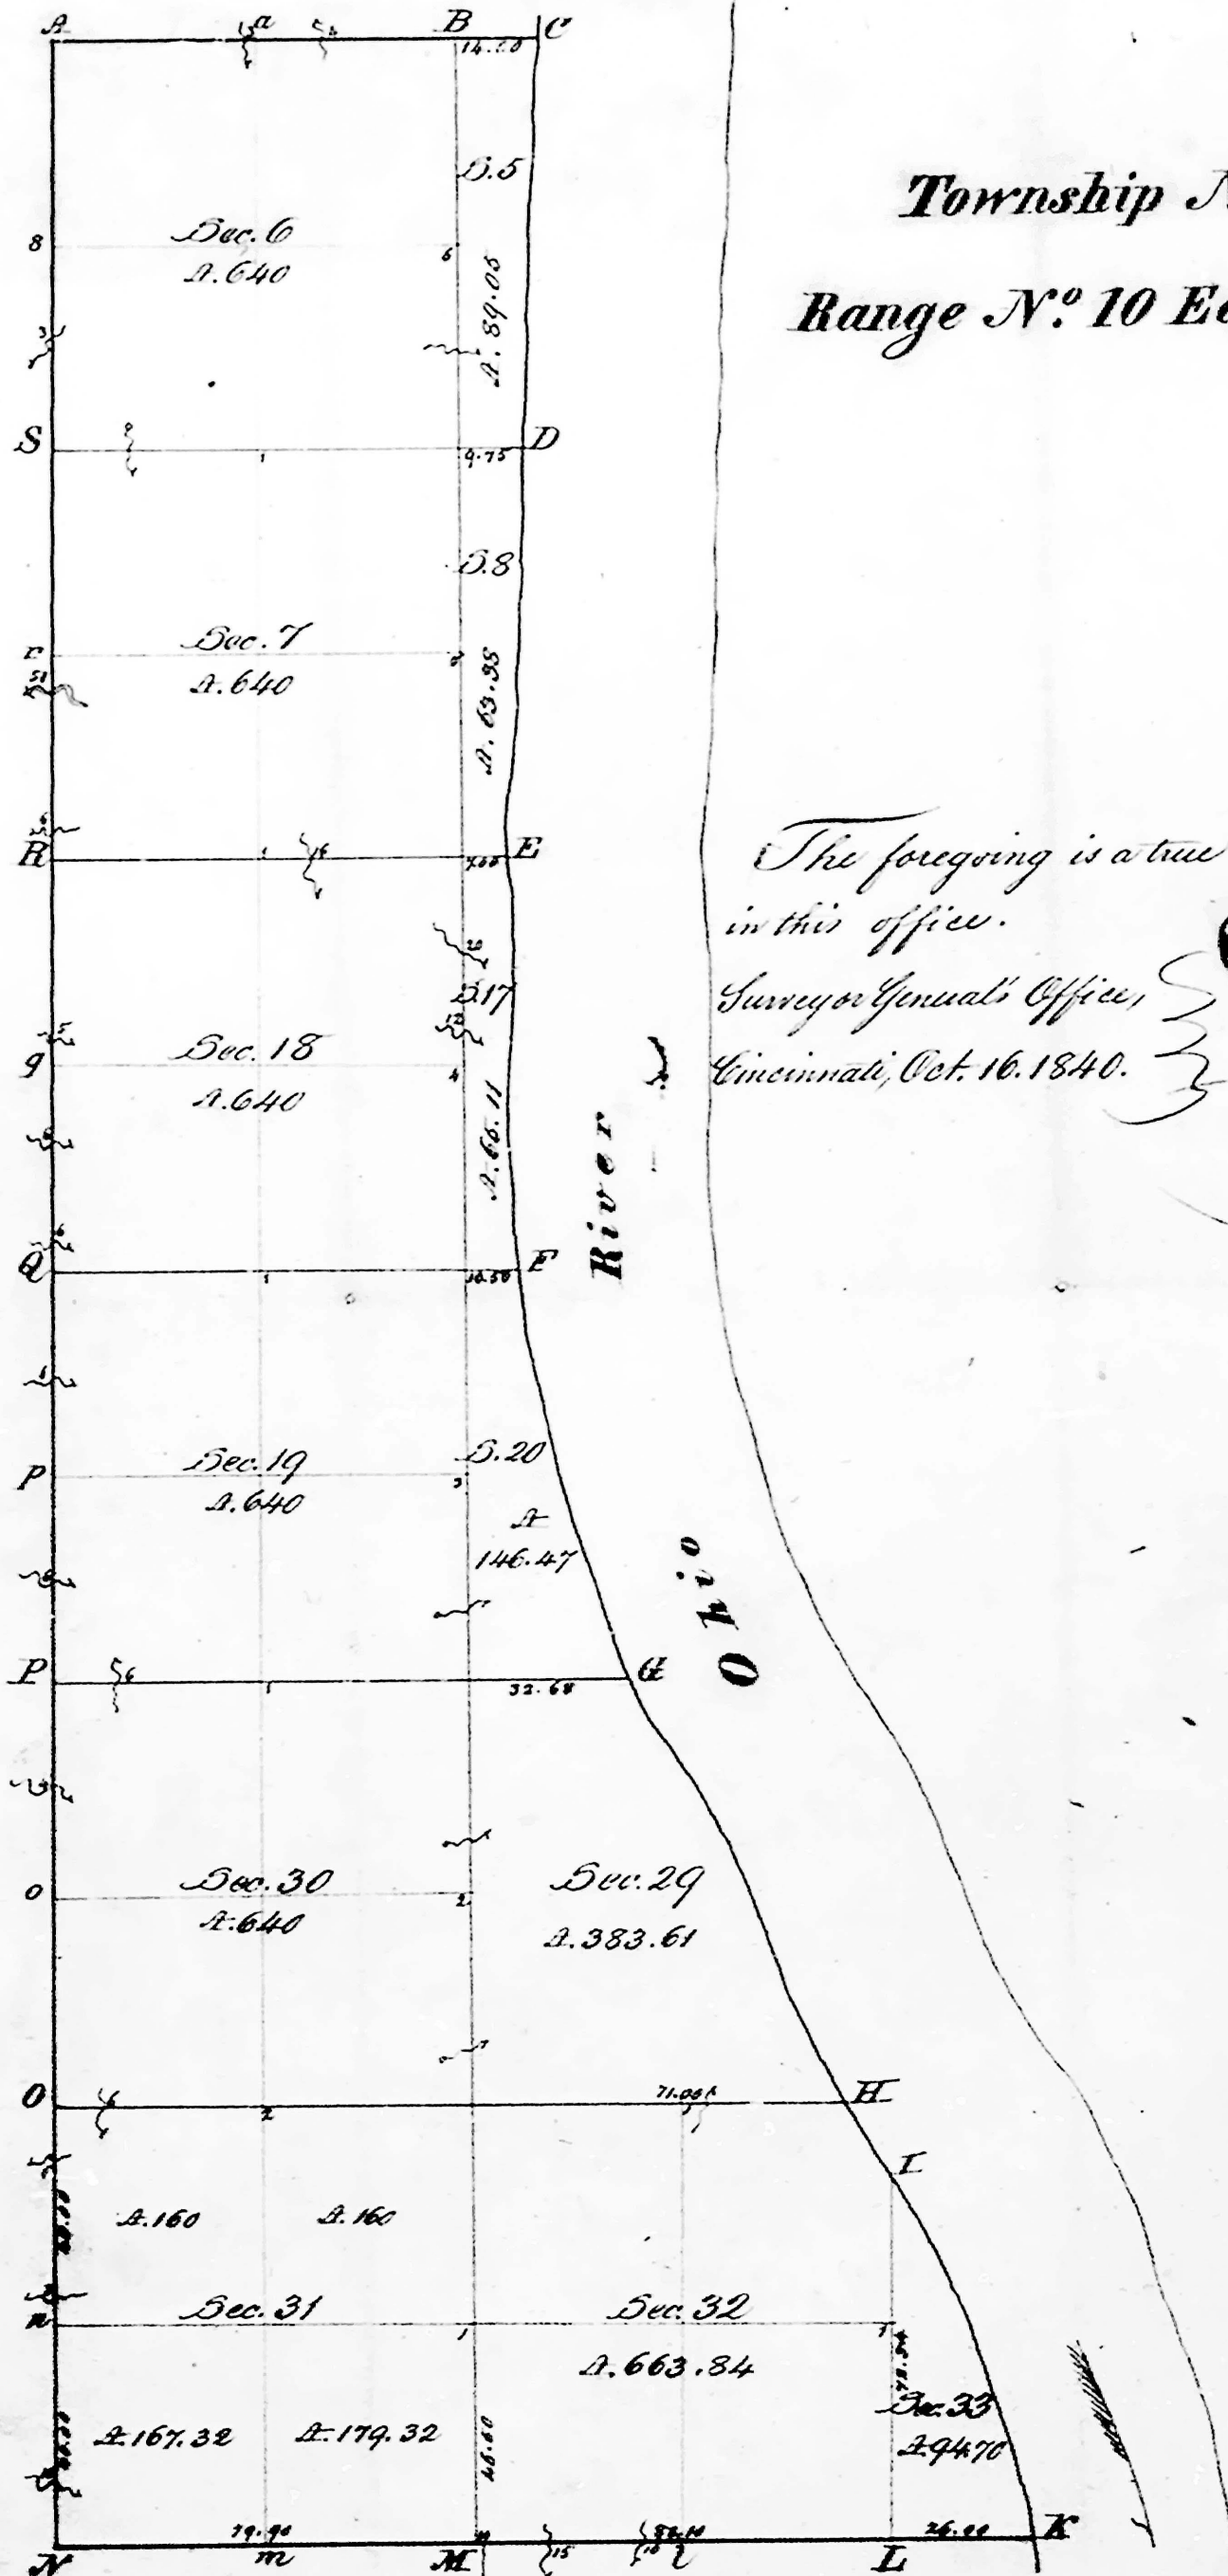 A a B C
14.50
S.5
Sec. 6
A. 640
8
6
A. 89.05
S
1
9.75
D
S.8
Sec. 7
A. 640
r
A. 63.95
R
E
S.17
Sec. 18
A. 640
q
4
A. 66.11
Q
1
10.50
F
S.20
Sec. 19
A. 640
p
3
A
146.47
P
1
32.68
G
Sec. 30
A. 640
o
2
Sec. 29
A. 383.61
O
2
71.00
H
I
A. 160
A. 160
n
Sec. 31
1
Sec. 32
A. 663.84
Sec. 33
A. 94.70
A. 167.32
A. 179.32
79.90
26.00
N m M 15 L K
River
Ohio
Township N
Range Nº 10 Ea
The foregoing is a true
in this office.
Surveyor General's Office,
Cincinnati, Oct. 16. 1840.